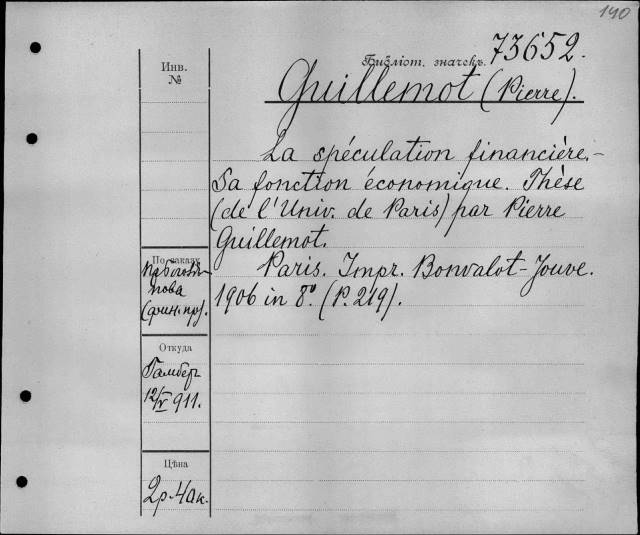 140
Библіот. значекъ. 73652.
Инв.
№
Guillemot (Pierre).
La spéculation financière.-
Sa fonction économique. Thèse
(de l'Univ. de Paris) par Pierre
Guillemot.
Paris. Impr. Bonvalot-Jouve.
1906 in 8º. (P. 219).
По заказу
пова
(фин. пр).
Откуда
Гамберъ
12/V 911.
Цѣна
2р. 40к.